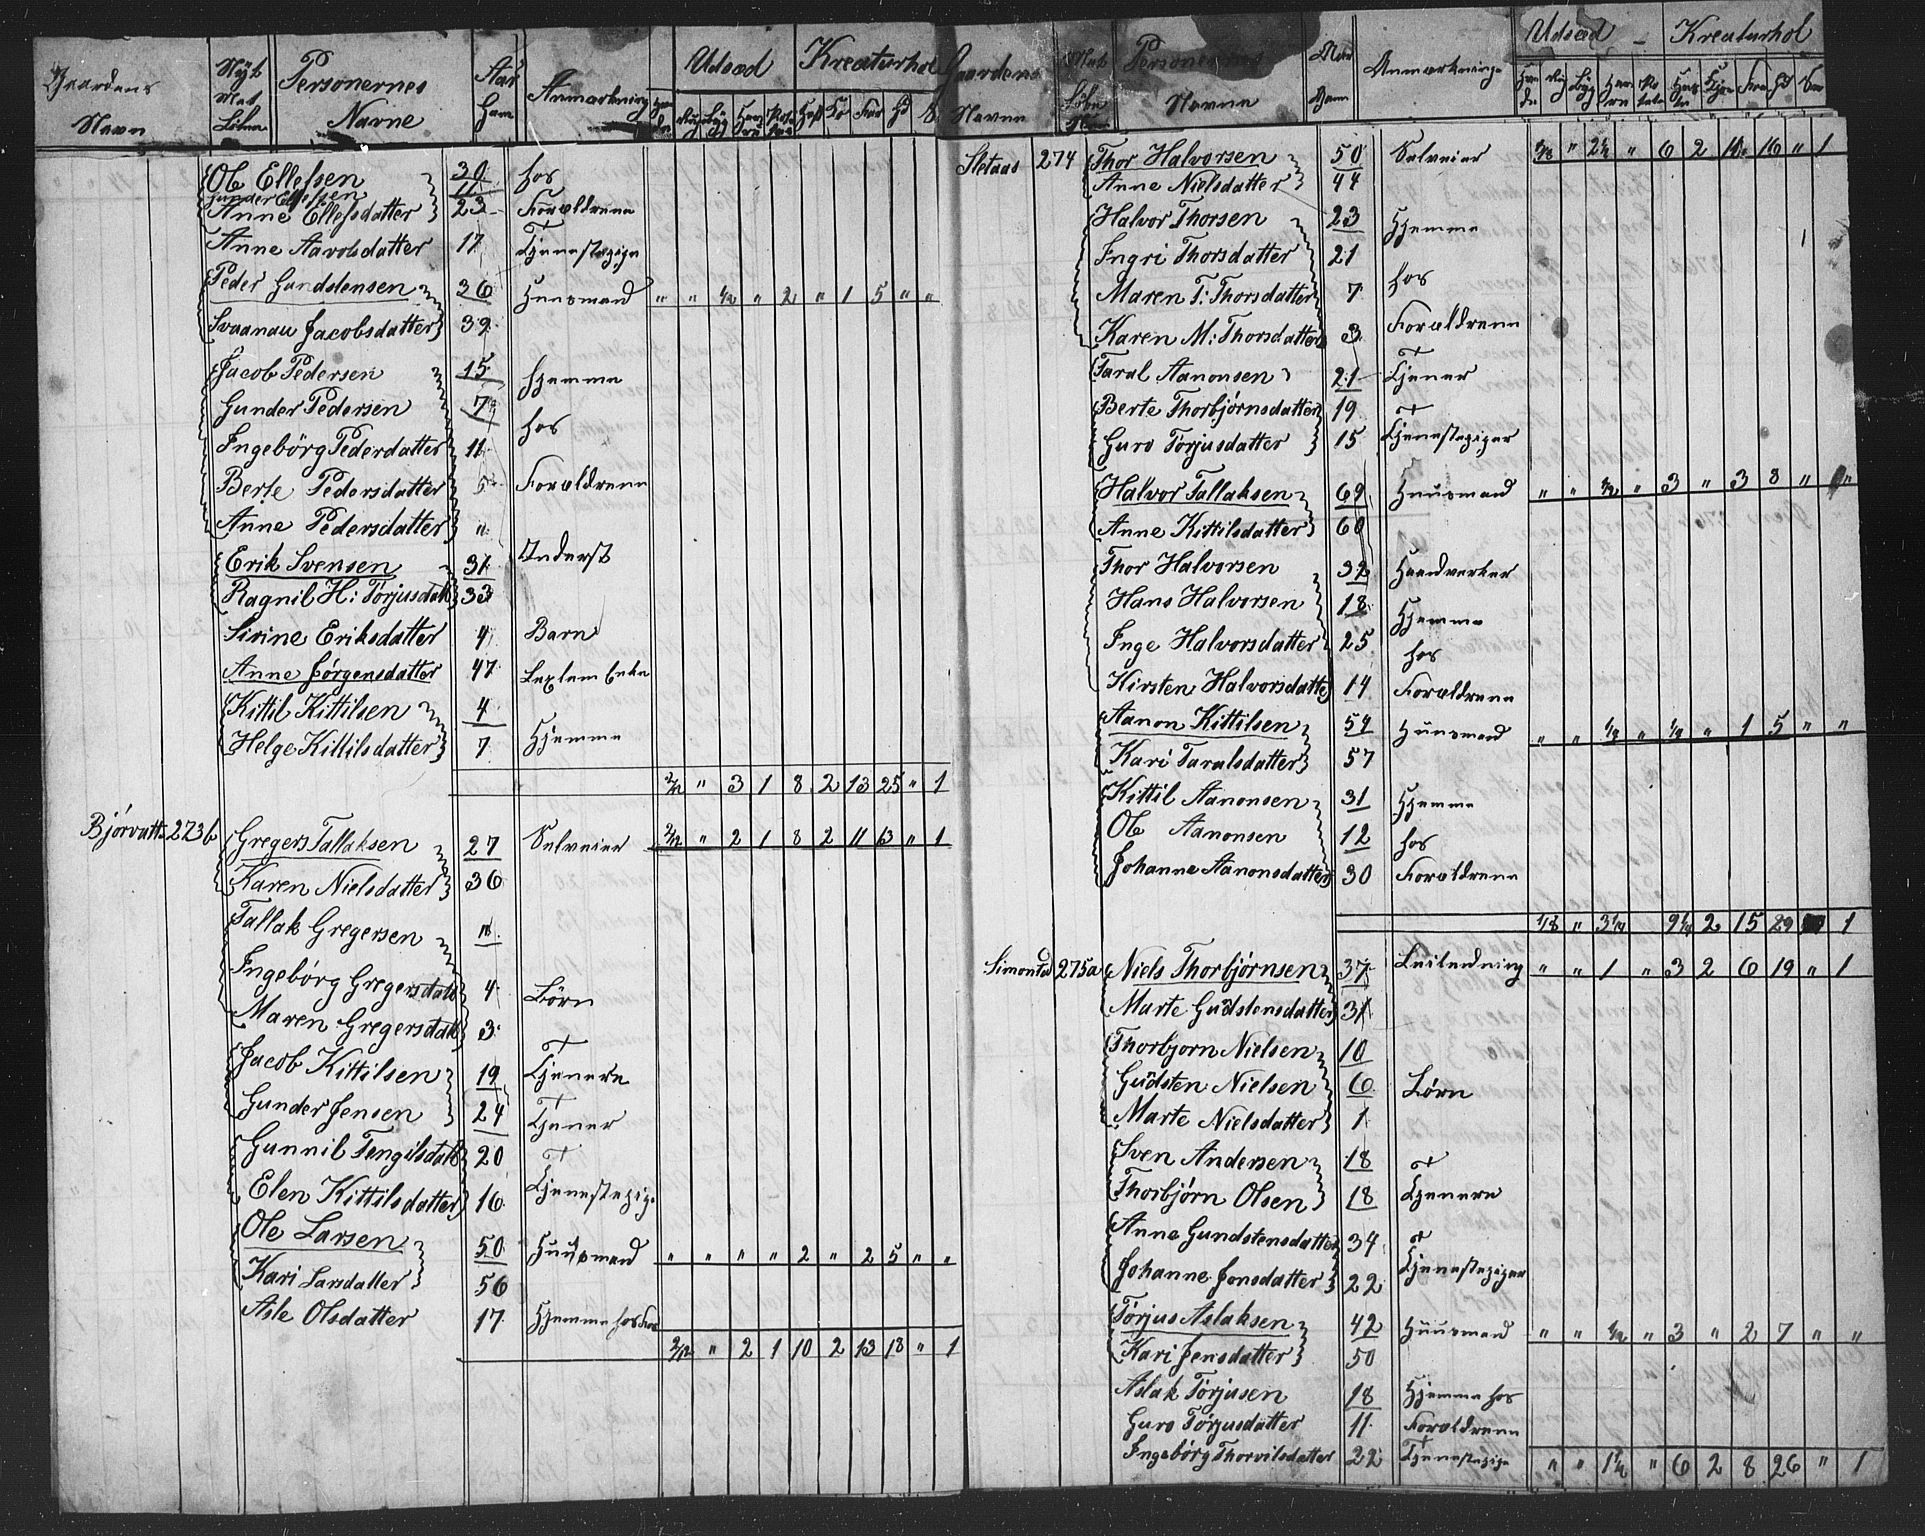 Gaardens Navn | Nyt Mat Løbne | Personernes Navne | Aar Ham | Anmærkning | Udsæd | Kreaturhol
Ole Ellefsen 30 hos
Gunder Ellefsen 11
Anne Ellefsdatter 23 Forældrene
Anne Aavolsdatter 17 Tjenestepige
Peder Gundstensen 36 Huusmand " " 1/2 " 2 " 1 5 " "
Svaanau Jacobsdatter 39
Jacob Pedersen 15 hjemme
Gunder Pedersen 7 hos
Ingebörg Pedersdatter 11
Berte Pedersdatter 5 Forældrene
Anne Pedersdatter "
Erik Svensen 31 Inderst
Ragnil H: Torjusdatt 33
Sirine Eriksdatter 4 Barn
Anne Jørgensdatter 47 Enke
Kittil Kittilsen 4
Helge Kittilsdatter 7 Hjemme
2/12 " 3 1 8 2 13 25 " 1
Bjórvatten 273b Gregers Tallaksen 27 Selveier 2/12 " 2 1 8 2 11 13 " 1
Karen Nielsdatter 36
Tallak Gregersen
Ingebórg Gregersdatt 4 Börn
Maren Gregersdatt 3
Jacob Kittilsen 19 Tjenere
Gunder Jensen 24 Tjener
Gunnil Tengilsdatt 20
Elen Kittilsdatter 16 Tjenestepige
Ole Larsen 50 Huusmand " " " " 2 " 2 5 " "
Kari Larsdatter 56
Asle Olsdatter 17 Hjemme hos For
2/12 " 2 1 10 2 13 18 " 1
Gaardens Navne | Mat Løbne Num | Personernes Navne | Alder | Anmærkninge | Udsæd | Kreaturhol
Sletaas 274 Thor Halvorsen 50 Selveier 1/8 " 2 1/2 " 6 2 10 16 " 1
Anne Nielsdatter 44
Halvor Thorsen 23 Hjemme
Ingri Thorsdatter 21
Maren T: Thorsdatter 7 hos
Karen M: Thorsdatter 3 Forældrene
Taral Aanonsen 21 Tjener
Berte Thorbjórnsdatter 19
Guro Tórjusdatter 15 Tjenestepiger
Halvor Tallaksen 69 Huusmand " " 1/2 " 3 " 3 8 " "
Anne Kittilsdatter 60
Thor Halvorsen 32 Haandverker
Hans Halvorsen 18 Hjemme
Inge Halvorsdatter 25 hos
Kirsten Halvorsdatte 14 Forældrene
Aanon Kittilsen 59 Huusmand " " 1/4 " 1/4 " 1 5 " "
Kari Taralsdatter 57
Kittil Aanonsen 31 Hjemme
Ole Aanonsen 12 hos
Johanne Aanonsdatter 30 Forældrene
1/8 " 3 1/4 9 1/4 2 15 29 1
Simonsted 275a Niels Thorbjórnsen 37 Leilending " " 1 " 3 2 6 19 " 1
Marte Gudstensdatter 31
Thorbjorn Nielsen 10
Gudsten Nielsen 6 Börn
Marte Nielsdatter 1
Sven Andersen 18
Thorbjörn Olsen 18 Tjenere
Anne Gundstensdatter 34
Johanne Jonsdatter 22 Tjenestepiger
Torjus Aslaksen 42 Huusmand " " 1/2 " 3 " 2 7 " "
Kari Jensdatter 50
Aslak Törjusen 18 Hjemme hos
Guro Törjusdatter 11 Forældrene
Ingebórg Thorvilsdatter 22 Tjenestepige
" " 1 1/2 " 6 2 8 26 " 1